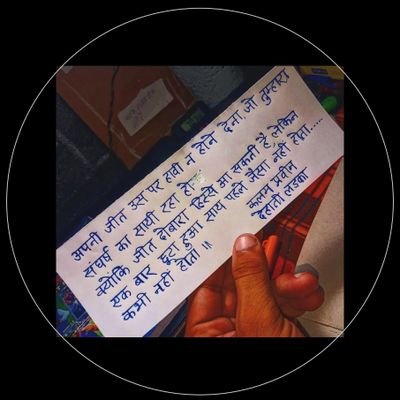 अपनी जीत उस पर हावी न होने देना, जो तुम्हारा
संघर्ष का साथी रहा हो
क्योंकि जीत दोबारा हिस्से आ सकती है, लेकिन
एक बार छूटा हुआ साथ पहले जैसा नहीं होता.....
कभी नहीं होता ॥
कलम प्रवीन
देहाती लड़का